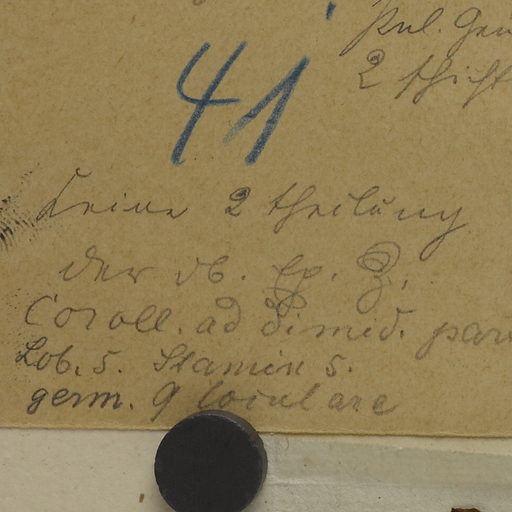 2
41
Keine 2 theilung
der ob.
Coroll. ad dimid. par
Lob. 5. Stamin 5.
germ. 9 loculare